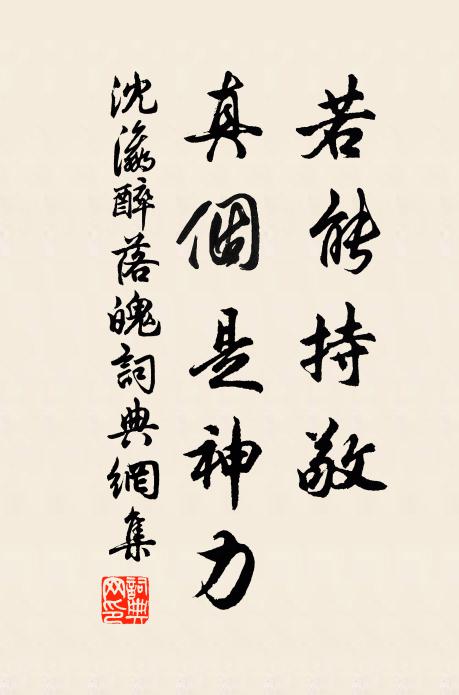 若能持敬
真個是神力
沈瀛醉落魄詞典網集
詞典網印